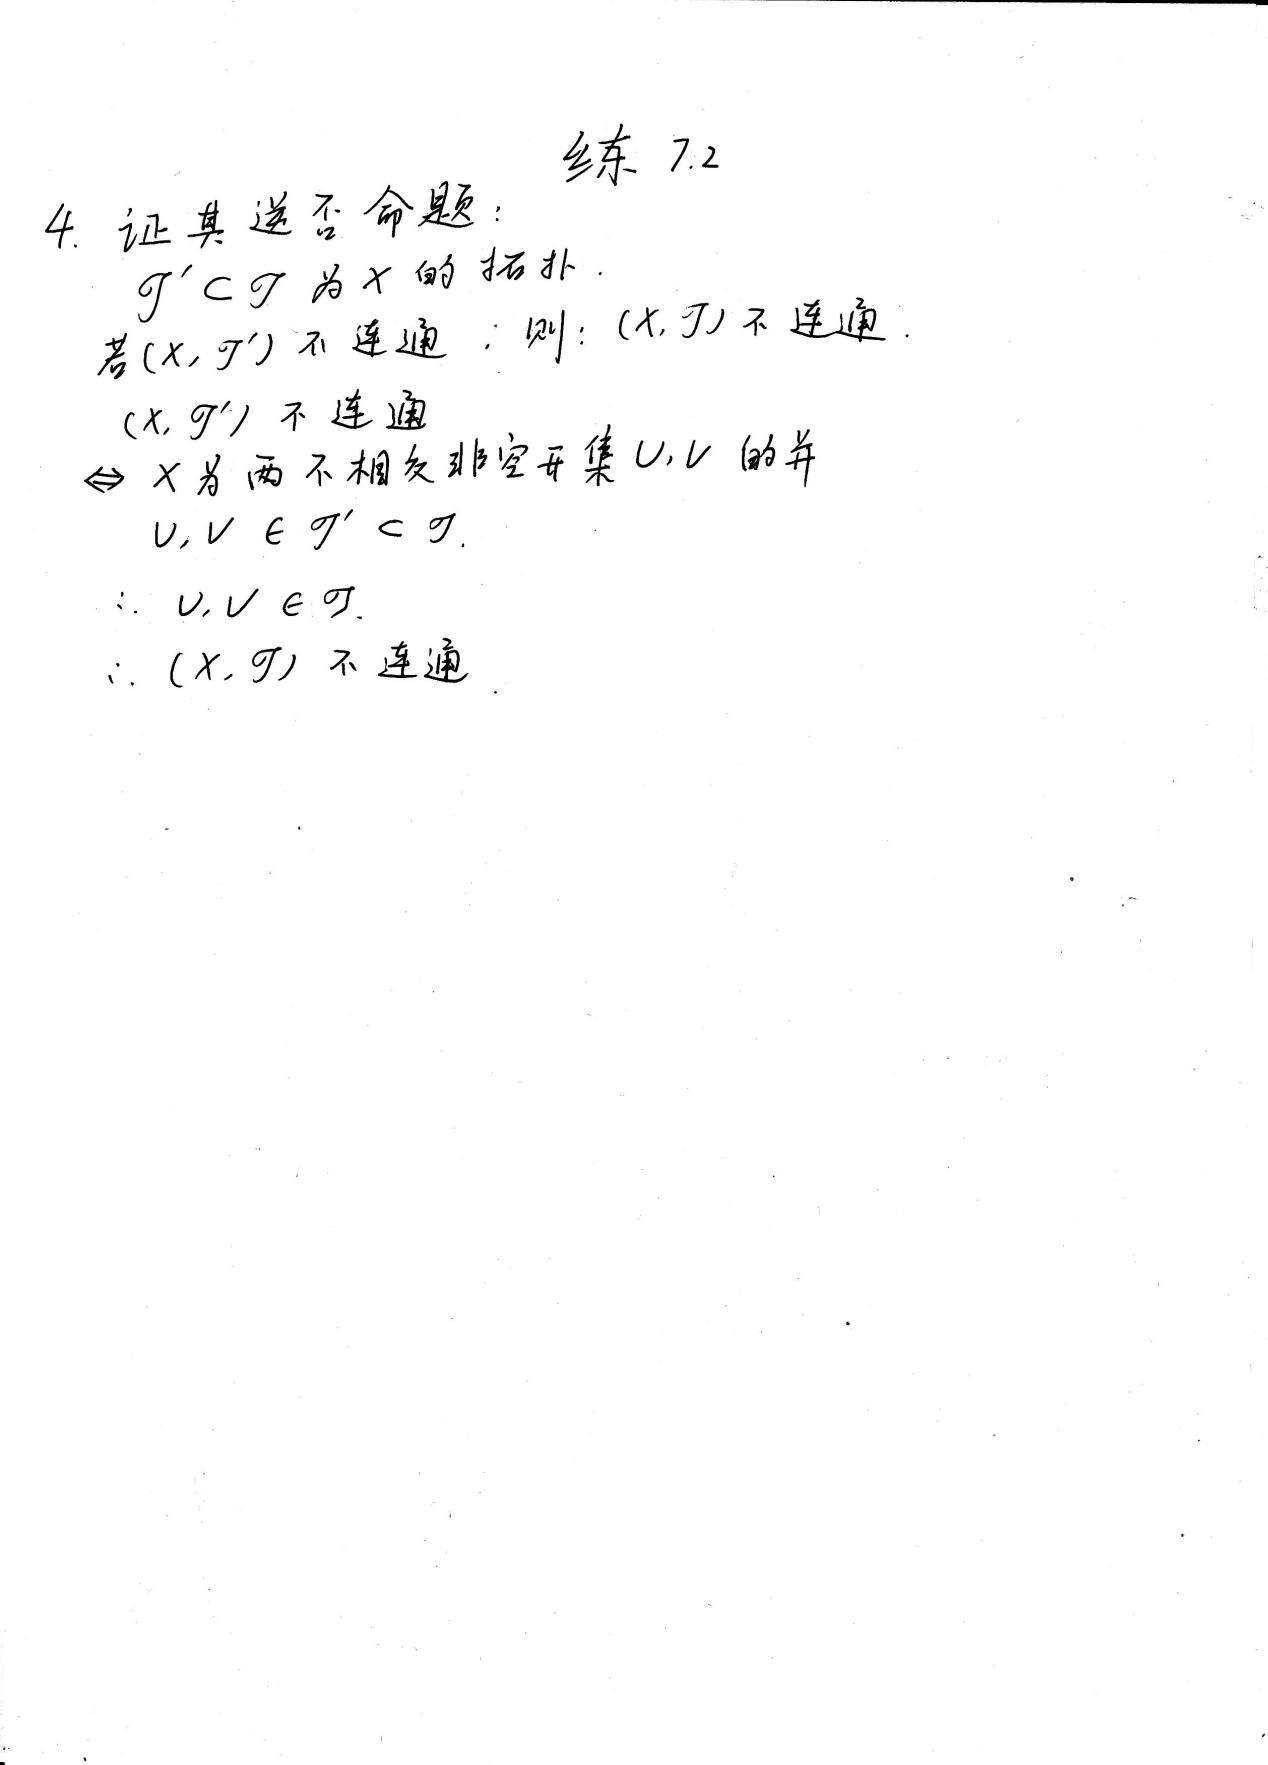 练 7.2
4. 证其逆否命题:
𝒯′ ⊂ 𝒯 为 X 的拓扑.
若(X, 𝒯′) 不连通, 则: (X, 𝒯) 不连通.
(X, 𝒯′) 不连通
⇔ X 为两不相交非空开集 U, V 的并
U, V ∈ 𝒯′ ⊂ 𝒯.
∴ U, V ∈ 𝒯.
∴ (X, 𝒯) 不连通.